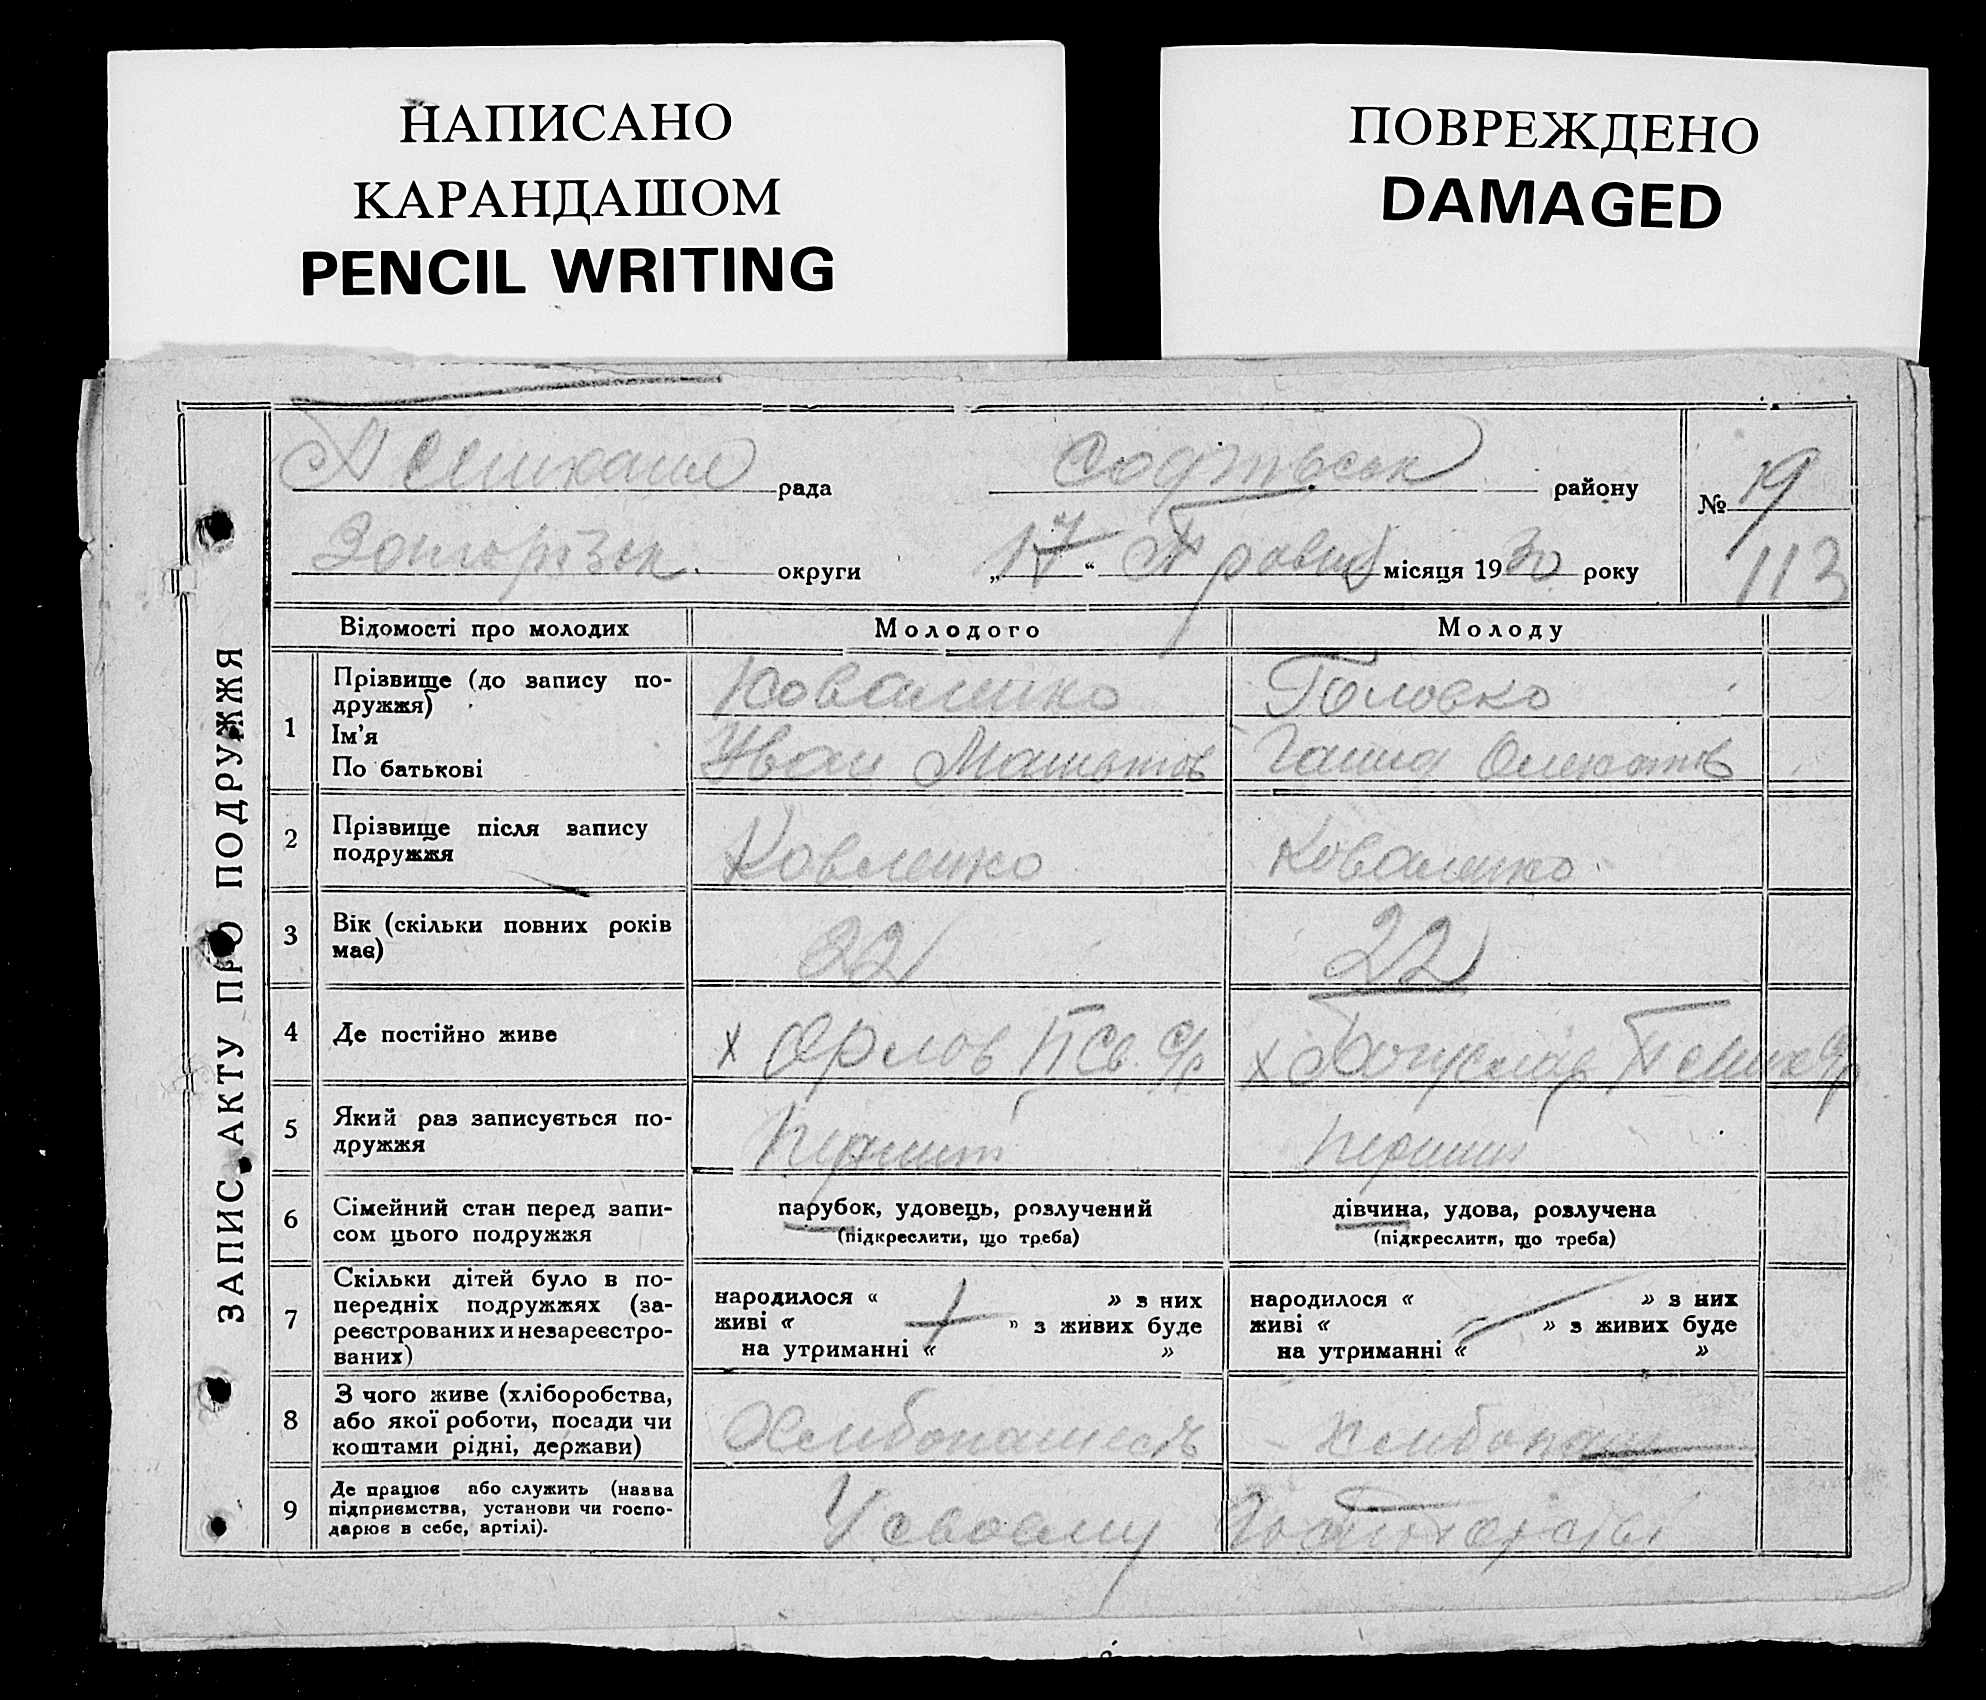 НАПИСАНО
КАРАНДАШОМ
PENCIL WRITING
ПОВРЕЖДЕНО
DAMAGED
ЗАПИС АКТУ ПРО ПОДРУЖЖЯ
рада району
№ 19
округи „17“ місяця 1930 року
113
Відомості про молодих Молодого Молоду
1 Прізвище (до запису по-
дружжя) Коваленко Головко
Ім'я
По батькові Иван Ганна
2 Прізвище після запису
подружжя Ковленко Коваленко
3 Вік (скільки повних років
має) 22 22
4 Де постійно живе х Орлов с/р х с/р
5 Який раз записується по-
дружжя
6 Сімейний стан перед запи-
сом цього подружжя
парубок, удовець, розлучений
(підкреслити, що треба)
дівчина, удова, розлучена
(підкреслити, що треба)
7 Скільки дітей було в по-
передніх подружжях (за-
реєстрованих и незареєстро-
ваних)
народилося « » з них
живі « » з живих буде
на утриманні « »
народилося « » з них
живі « » з живих буде
на утриманні « »
8 З чого живе (хліборобства,
або якої роботи, посади чи
коштами рідні, держави)
9 Де працює або служить (назва
підприємства, установи чи госпо-
дарює в себе, артілі).
У своему